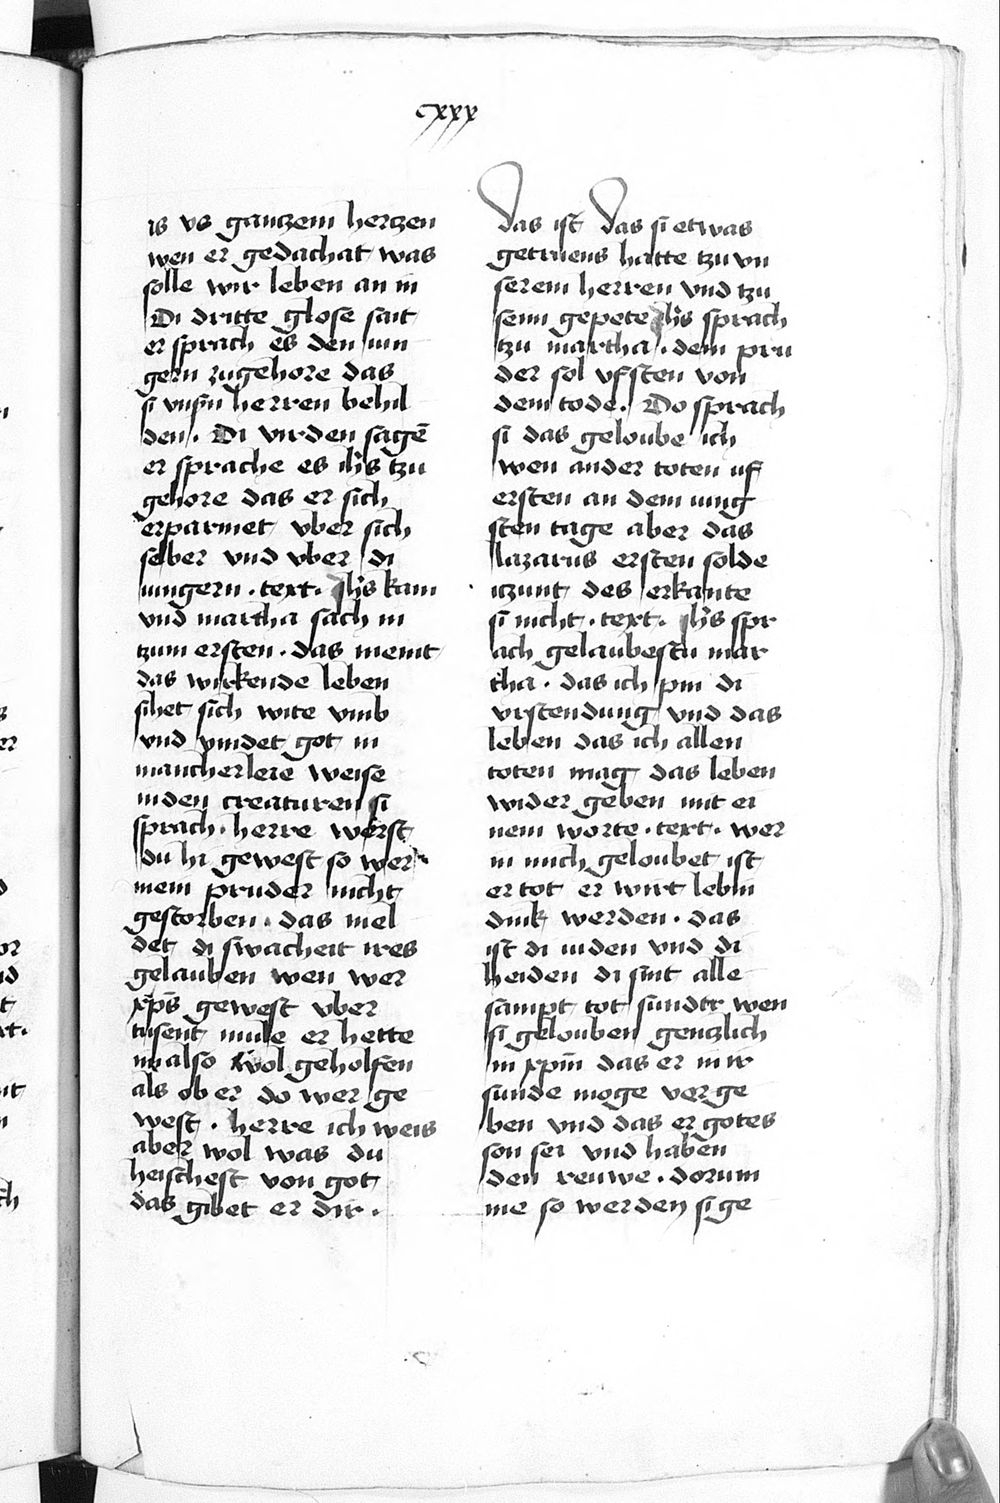 cxxx
is vs ganczem herczen
wen er gedachat was
solle wir leben an in
Di dritte glose sait
er sprach es den iun
gern zugehore das
si vnsn̄ herren behil
den. Di virden sagē
er sprache es ihs tzu
gehore das er sich
erparmet vber sich
selber vnd vber di
iungern. text. Ihs kam
vnd martha sach in
tzum ersten. das meint
das wirkende leben
sihet sich wite vmb
vnd vindet got in
mancherleie weise
inden creaturen si
sprach. herre werst
du hi gewest so wer
mein pruder nicht
gestorben. das mel
det di swacheit ires
gelauben wen wer
xp̄s gewest vber
tusent mile er hette
im also wol geholfen
als ob er do wer ge
west. herre ich weis
aber wol was du
heischest von got
das gibet er dir.
Das ist Das si etwas
getruens hatte tzu vn
serem herren vnd tzu
seim gepete Ihs sprach
tzu martha. dein pru
der sol vfsten von
dem tode. Do sprach
si das geloube ich
wen ander toten uf
ersten an dem iung
sten tage aber das
lazarus ersten solde
iczunt des erkante
si nicht. text. Ihs spr
ach gelaubestu mar
tha. das ich pin di
vrstendung vnd das
leben das ich allen
toten mag das leben
wider geben mit ei
nem worte. text. wer
in mich geloubet ist
er tot er wirt lebin
dink werden. das
ist di iuden vnd di
heiden di sint alle
sampt tot sunder wen
si gelouben genczlich
in xpm̄ das er in ir
sunde moge verge
ben vnd das er gotes
son sei vnd haben
den reuwe. dorum
me so werden si ge